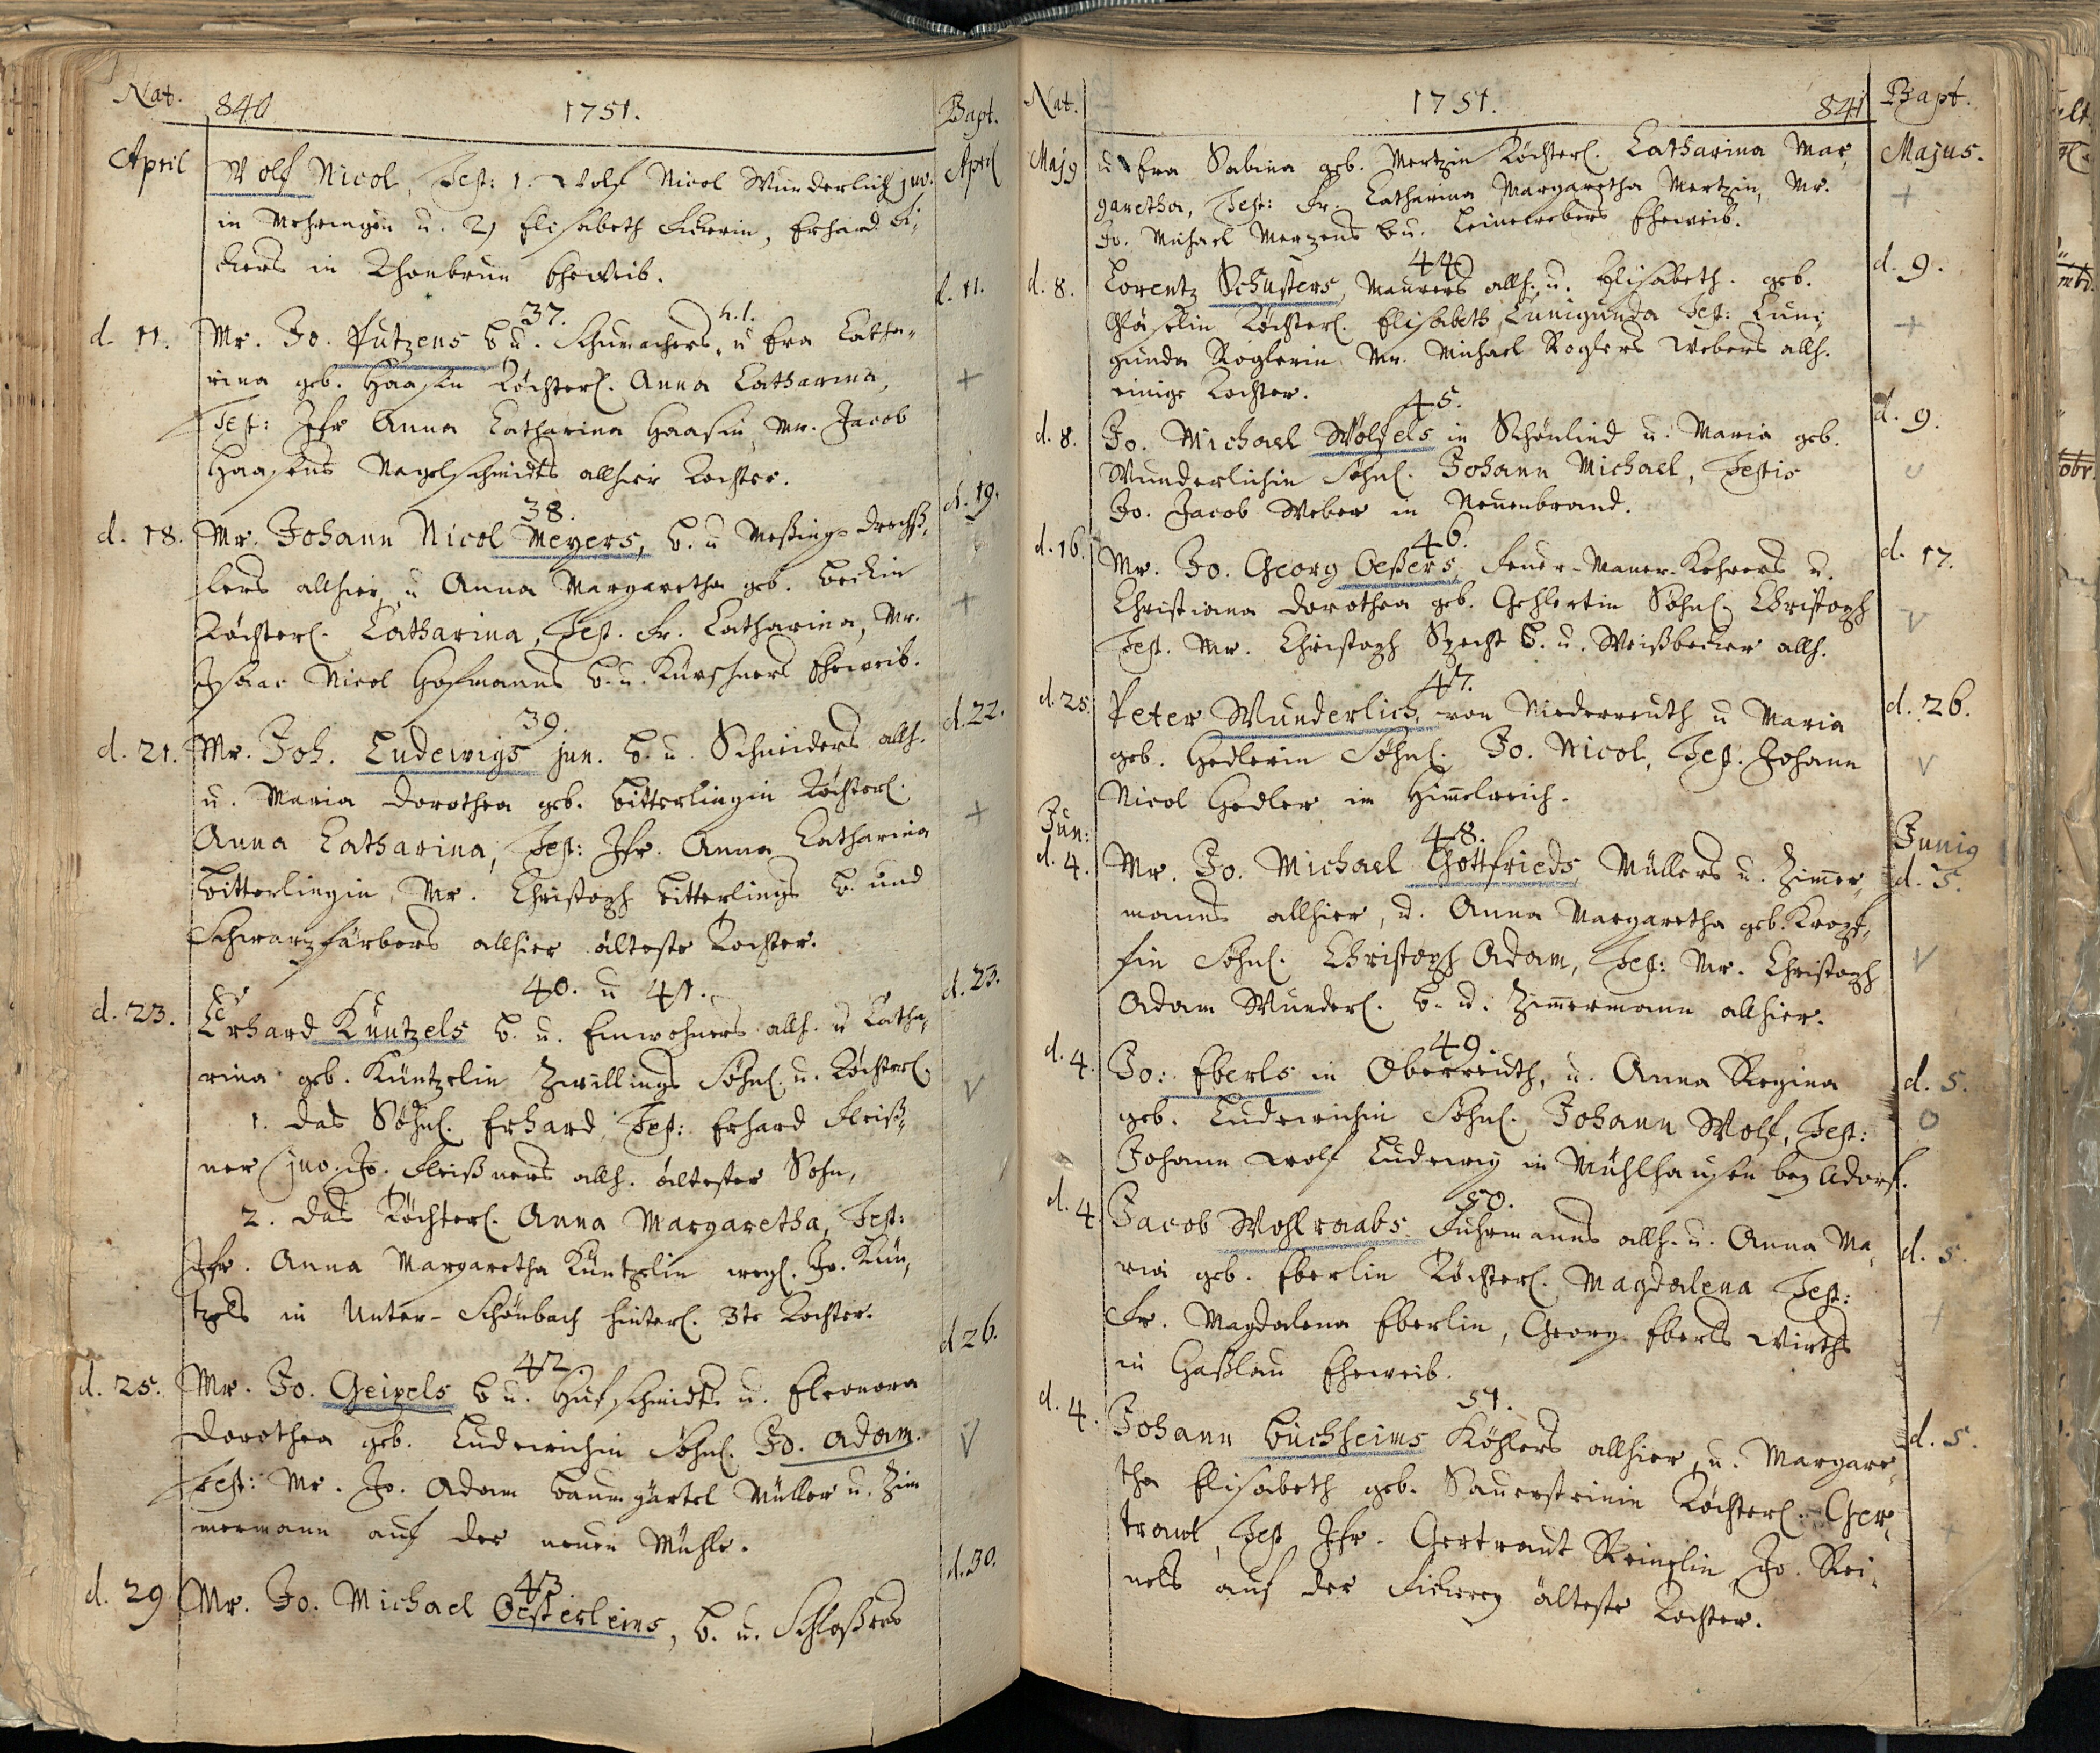 Nat. 840 1751. Bapt.
April Wolf Nicol, Test: 1. Wolf Nicol Wunderlich juv. April
in Mehringen u. 2, Elisabeth Fickerin, Erhard Fi-
ckers in Thonbrun Eheweib.
37. h. 1. d. 11.
d. 11. Mr. Jo. Putzens b. u. Schumachers, u Eva Catha-
rina geb. Haasin Töchterl. Anna Catharina,
Test: Jfr Anna Catharina Haasin, Mr. Jacob
Haasens Nagelschmidts allhier Tochter.
38. d. 19.
d. 18. Mr. Johann Nicol Meyers, b. u Meßing-Drechß-
lers allhier, u Anna Margaretha geb. Beckin
Töchterl. Catharina, Test. Fr. Catharina, Mr.
Isaac Nicol Hofmanns b. u. Kürschners Eheweib.
39. d. 22.
d. 21. Mr. Joh. Ludewigs jun. b. u. Schneiders allh.
u. Maria Dorothea geb. Bitterlingin Töchterl.
Anna Catharina, Test: Jfr. Anna Catharina
Bitterlingin, Mr. Christoph Bitterlings b. und
Schwarzfärbers allhier älteste Tochter.
40. u 41. d. 23.
d. 23. Erhard Küntzels b. u. Einwohners allh. u Catha-
rina geb. Küntzelin Zwillings Söhnl. u. Töchterl.
1. das Söhnl. Erhard, Test: Erhard Fleiß-
ner juv. Jo. Fleißners allh. ältester Sohn,
2. das Töchterl. Anna Margaretha, Test:
Jfr. Anna Margaretha Küntzelin weyl. Jo. Kün-
tzels in Unter-Schönbach hinterl. 3te Tochter.
42. d 26.
d. 25. Mr. Jo. Geipels b u. Hufschmidts u. Eleonora
Dorothea geb. Ludewichin Söhnl. Jo. Adam.
Test: Mr. Jo. Adam Baumgärtel Müller u. Zim
mermann auf der neuen Mühle.
43. d. 30.
d. 29 Mr. Jo. Michael Oesterleins, b. u. Schloßers
Nat. 1751. 841 Bapt.
Maj9 u Eva Sabina geb. Mertzin Töchterl. Catharina Mar- Majus.
garetha, Test: Fr. Catharina Margaretha Mertzin, Mr.
Jo. Michael Merzens b u. Leinewebers Eheweib.
44.
d. 8. Lorentz Schusters, Maurers allh. u. Elisabeth geb. d. 9.
Gläselin Töchterl. Elisabeth, Cunigunda Test: Cuni-
gunda Roglerin Mr. Michael Roglers Webers allh.
einige Tochter.
45.
d. 8. Jo. Michael Wölfels in Schönlind u. Maria geb. d. 9.
Wunderlichin Söhnl. Johann Michael, Testis
Jo. Jacob Weber in Neuenbrand.
46.
d. 16. Mr. Jo. Georg Oeßers, Feuer-Mauer-Kehrers u. d. 17.
Christiana Dorothea geb. Gehlertin Söhnl. Christoph
Test. Mr. Christoph Specht b. u. Weißbecker allh.
47.
d. 25. Peter Wunderlich, von Niederreuth u Maria d. 26.
geb. Hedlerin Söhnl. Jo. Nicol, Test. Johann
Nicol Hedler im Himelreich.
Jun: 48. Juni9
d. 4. Mr. Jo. Michael Gottfrieds, Müllers u. Zimer- d. 5.
manns allhier, u. Anna Margaretha geb. Kropf-
fin Söhnl. Christoph Adam, Test: Mr. Christoph
Adam Wunderl. b. u. Zimmermann allhier.
49.
d. 4. Jo: Eberls in Oberreuth, u. Anna Regina d. 5.
geb. Ludewichin Söhnl. Johann Wolf, Test:
Johann Wolf Ludewig in Mühlhausen bey Adorf.
50.
d. 4. Jacob Wohlraabs Fuhrmanns allh. u. Anna Ma- d. 5.
ria geb. Eberlin Töchterl. Magdalena Test:
Fr. Magdalena Eberlin, Georg Eberls Wirths
in Haßlau Eheweib.
51.
d. 4. Johann Buchheims Köhlers allhier, u. Margare- d. 5.
tha Elisabeth geb. Sauersteinin Töchterl. Ger-
traut, Test Jfr. Gertraut Reinelin Jo. Rei-
nels auf der Fickerey älteste Tochter.